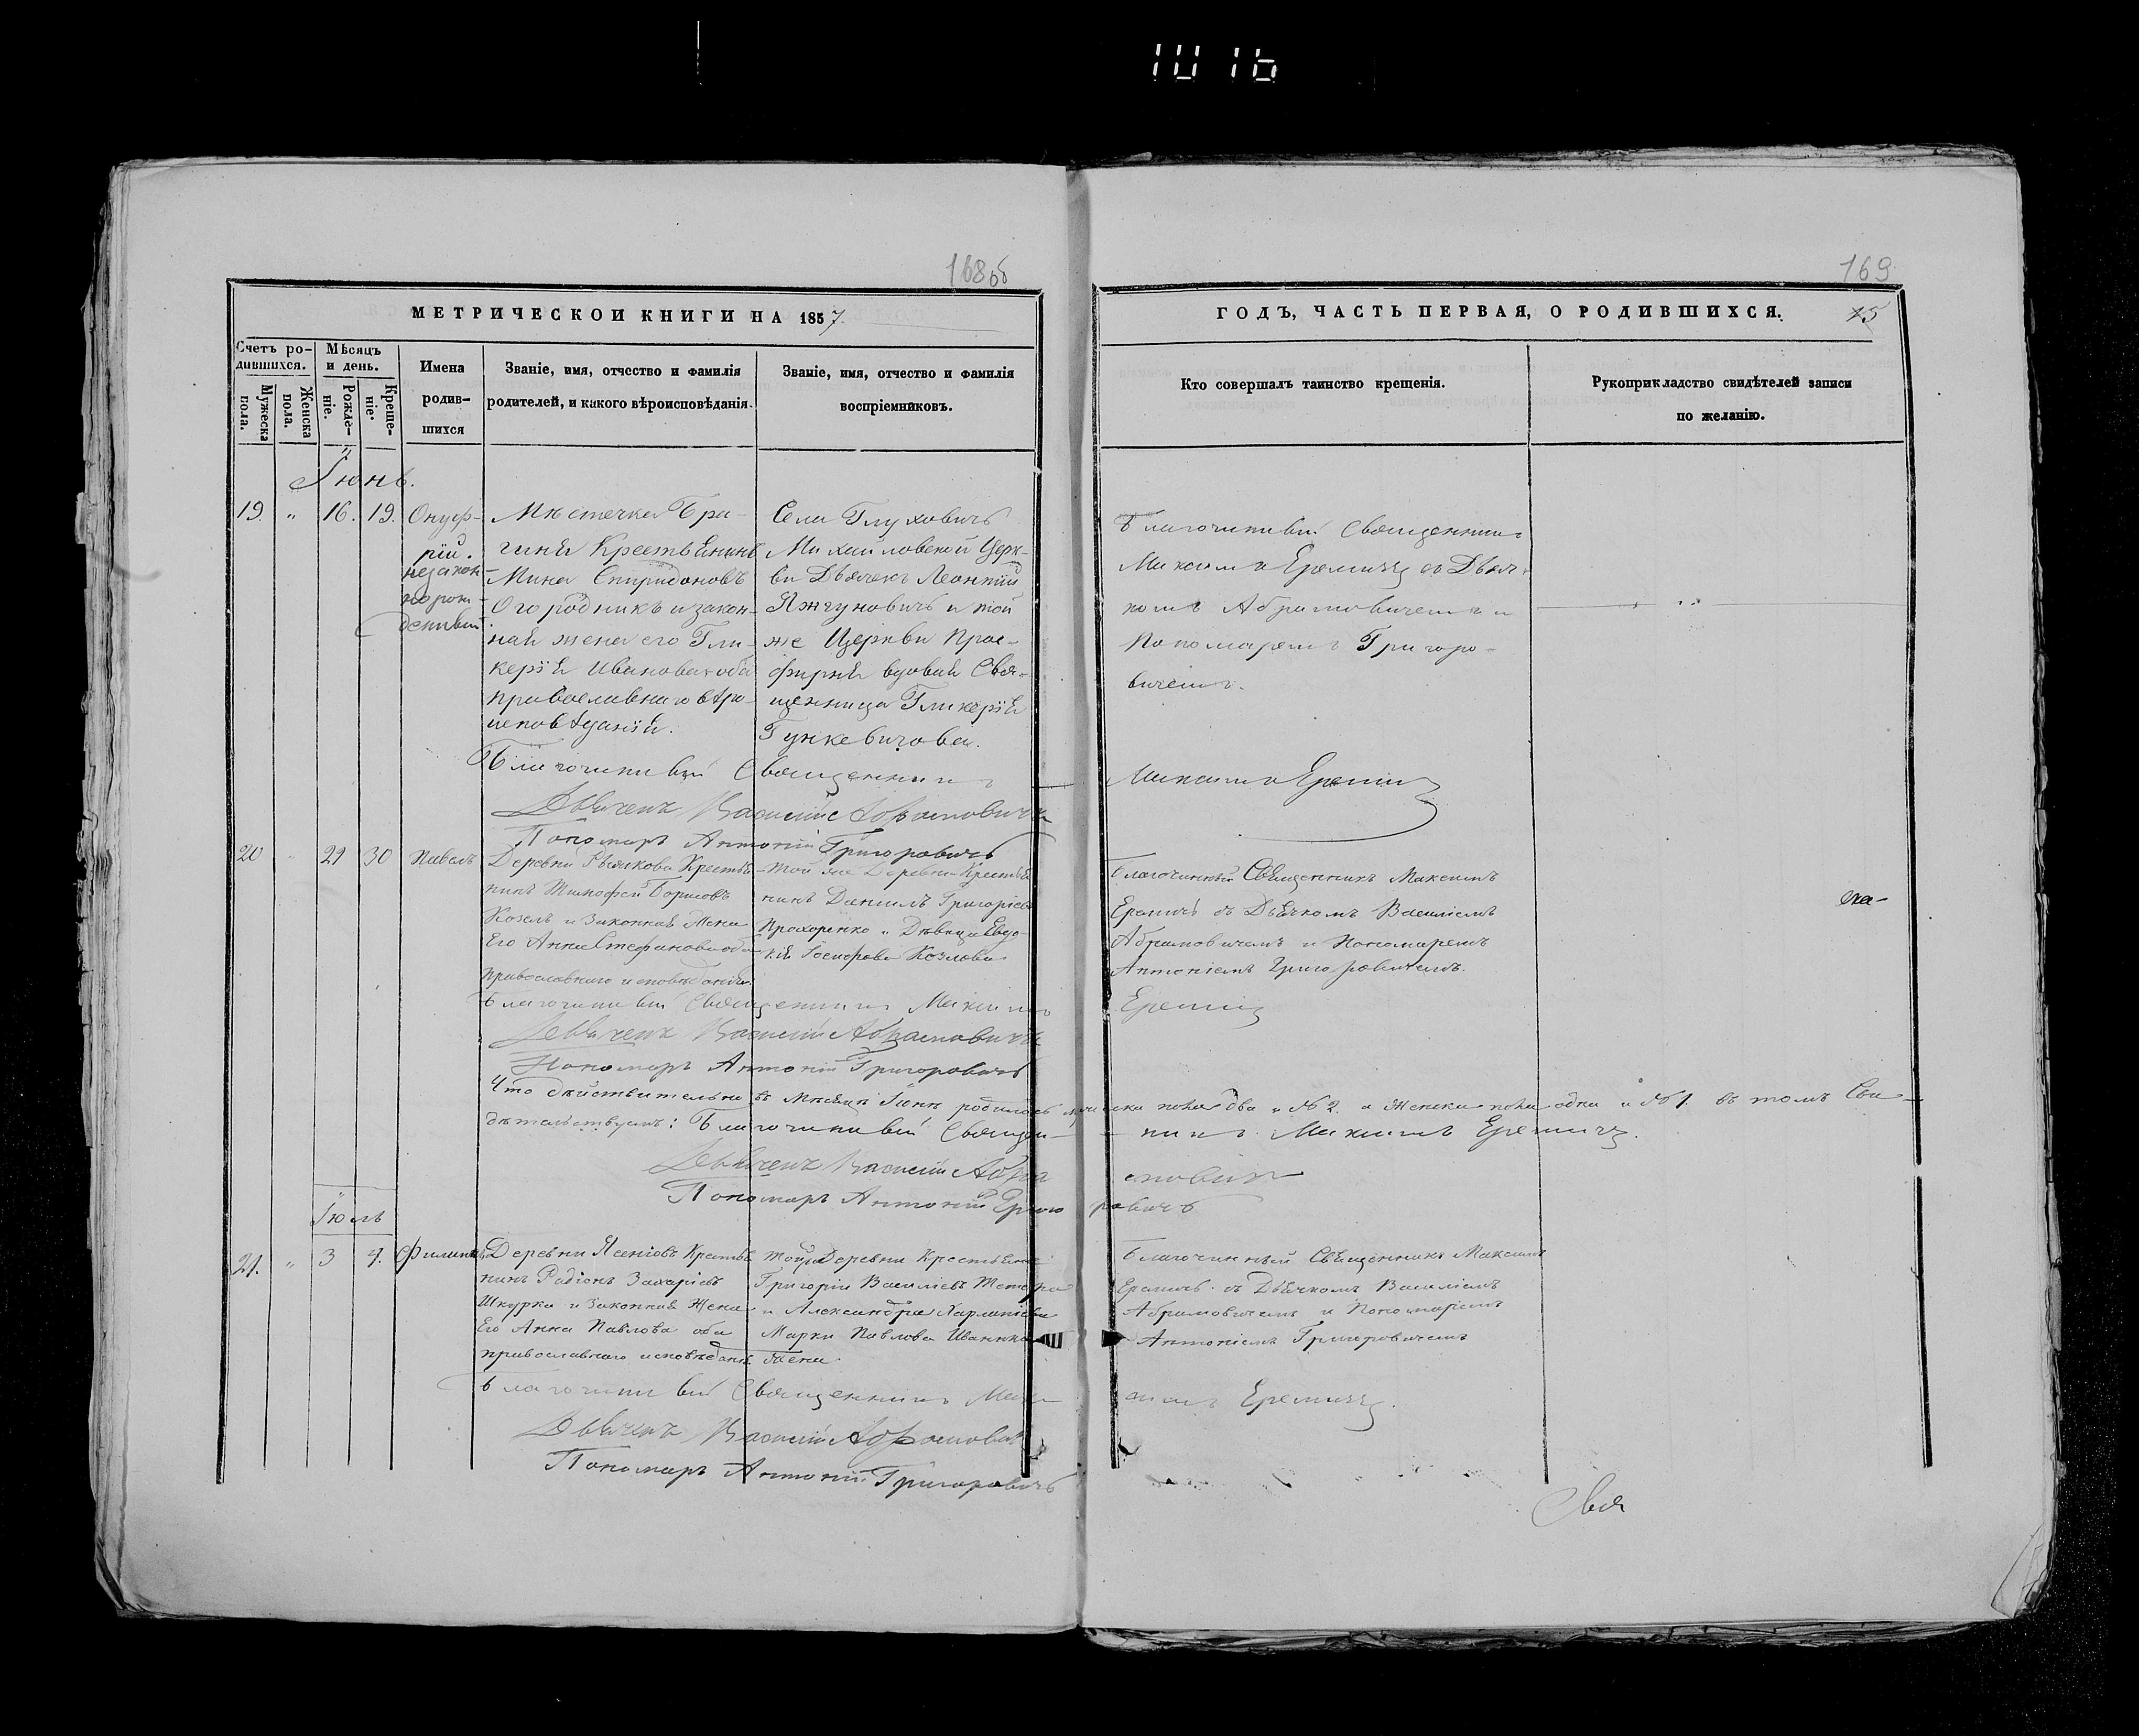 1016
168об
169
МЕТРИЧЕСКОИ КНИГИ НА 1857
ГОДЪ, ЧАСТЬ ПЕРВАЯ, О РОДИВШИХСЯ.
15
Счетъ родившихся.
Мужеска пола.
Женска пола.
Мѣсяцъ и день.
Рожденіе.
Крещеніе.
Имена родившихся
Званіе, имя, отчество и фамилія
родителей, и какого вѣроисповѣданія.
Званіе, имя, отчество и фамилія
воспріемниковъ.
Кто совершалъ таинство крещенія.
Рукоприкладство свидѣтелей записи
по желанію.
Іюнь.
19. " 16. 19.
Онуф-
рій.
незакон-
норож-
денный
Мѣстечка Бра-
гиня Крестьянинъ
Мина Спиридоновъ
Огородникъ и закон-
ная жена его Гли-
керія Иванова оба
православнаго вѣро-
исповѣданія.
Села Глуховичъ
Михайловской Церк-
ви Дьячекъ Леонтій
Яжгуновичъ и той
же Церкви Прос-
фирня вдовая Свя-
щенница Гликерія
Гункевичова.
Благочинный Священникъ
Максимъ Еремичъ съ Дьяч-
комъ Абрамовичемъ и
Пономаремъ Григоро-
вичемъ.
Благочинный Священникъ
Максимъ Еремичъ
Дьячекъ Василій Абрамовичъ
Пономарь Антоній Григоровичъ
20 " 29 30 Павелъ
Деревни Рѣсякова Крестья-
нинъ Тимофей Борисовъ
Козелъ и Законная Жена
Его Анна Стефанова оба
православнаго исповѣданія.
той же Деревни Крестья
нинъ Даніилъ Григоріевъ
Прохоренко и Дѣвица Евдо-
кія Іосифова Козлова
Благочинный Священникъ Максимъ
Еремичъ съ Дьячкомъ Василіемъ
Абрамовичемъ и Пономаремъ
Антоніемъ Григоровичемъ.
Благочинный Священникъ Максимъ
Еремичъ
Дьячекъ Василій Абрамовичъ
Пономарь Антоній Григоровичъ
Что дѣйствительно въ Мѣсяцѣ Іюнѣ родилось мужеска пола два и № 2. а Женска пола одна и № 1. въ томъ Сви-
дѣтельствуемъ: Благочинный Священ-
никъ Максимъ Еремичъ.
Дьячекъ Василій Абрамовичъ
Пономарь Антоній Григоровичъ
Іюль
21. " 3 7. Филиппъ
Деревни Ясеновъ Крестья
нинъ Радіонъ Захаріевъ
Шкурка и Законная Жена
Его Анна Павлова оба
православнаго исповѣданія
той же Деревни Крестьяне
Григорій Василіевъ Тетера
и Александра Карпинiева
Марки Павлова Иванько
Жена.
Благочинный Священникъ Максимъ
Еремичъ съ Дьячкомъ Василіемъ
Абрамовичемъ и Пономаремъ
Антоніемъ Григоровичемъ
Благочинный Священникъ Максимъ Еремичъ.
Дьячекъ Василій Абрамовичъ
Пономарь Антоній Григоровичъ
Свя